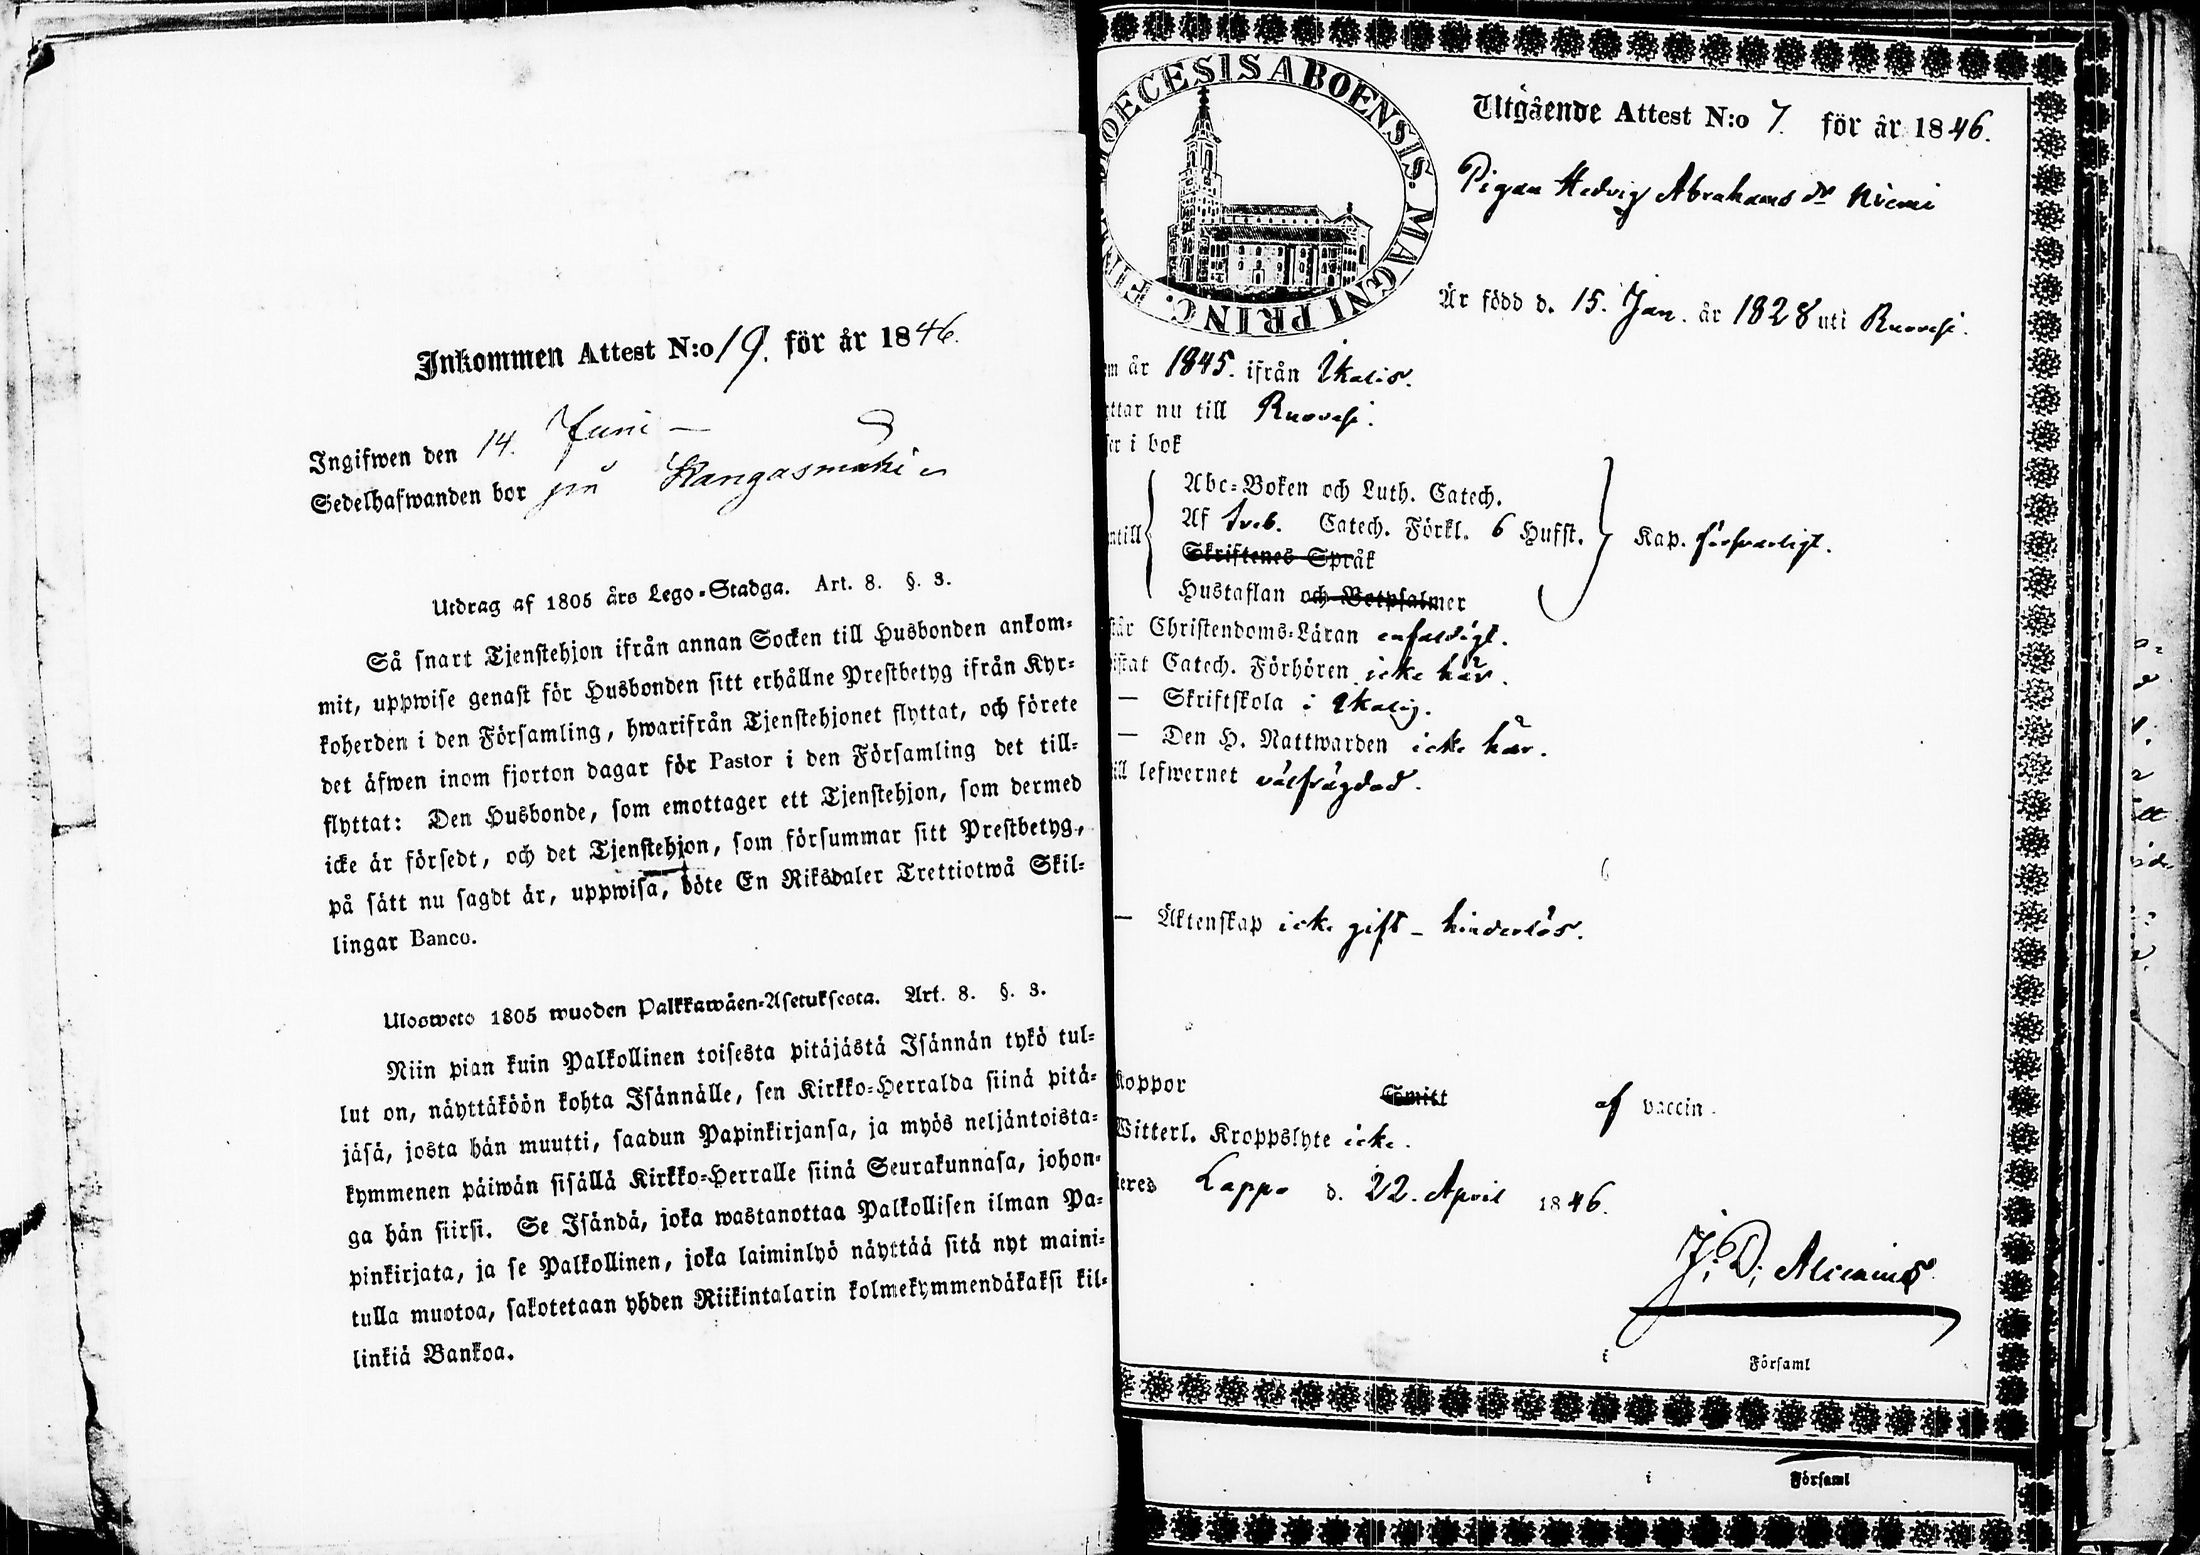 Inkommen Attest N:o 19. för år 1846.
Ingifwen den 14. Juni –
Sedelhafwanden bor på Kangasmäki
Utdrag af 1805 års Lego-Stadga. Art. 8. §. 3.
Så snart Tjenstehjon ifrån annan Socken till Husbonden ankom-
mit, uppwise genast för Husbonden sitt erhållne Prestbetyg ifrån Kyr-
koherden i den Församling, hwarifrån Tjenstehjonet flyttat, och förete
det äfwen inom fjorton dagar för Pastor i den Församling det till-
flyttat: Den Husbonde, som emottager ett Tjenstehjon, som dermed
icke är försedt, och det Tjenstehjon, som försummar sitt Prestbetyg,
på sätt nu sagdt är, uppwisa, böte En Riksdaler Trettiotwå Skil-
lingar Banco.
Ulosweto 1805 wuoden Palkkawäen-Asetuksesta. Art. 8. §. 3.
Niin pian kuin Palkollinen toisesta pitäjästä Isännän tykö tul-
lut on, näyttäköön kohta Isännälle, sen Kirkko-Herralda siinä pitä-
jäsä, josta hän muutti, saadun Papinkirjansa, ja myös neljäntoista-
kymmenen päiwän sisällä Kirkko-Herralle siinä Seurakunnasa, johon-
ga hän siirsi. Se Isändä, joka wastanottaa Palkollisen ilman Pa-
pinkirjata, ja se Palkollinen, joka laiminlyö näyttää sitä nyt maini-
tulla muotoa, sakotetaan yhden Riikintalarin kolmekymmendäkaksi kil-
linkiä Bankoa.
DIOECESIS ABOENSIS. MAGNI PRINC. FIN
Utgående Attest N:o 7. för år 1846.
Pigan Hedvig Abrahams dr Niemi
Är född d. 15. Jan. år 1828 uti Ruovesi.
m år 1845. ifrån Ikalis.
ttar nu till Ruovesi.
ser i bok
Abc-Boken och Luth. Catech.
Af Sveb. Catech. Förkl. 6 Hufst.
ntill Kap. försvarligt.
Skriftenes Språk
Hustaflan och Botpsalmer
står Christendoms-Läran enfaldigt.
istat Catech. Förhören icke här.
— Skriftskola i Ikalis.
— Den H. Nattwarden icke här.
ill lefwernet välfrägdad.
— Äktenskap icke gift – hinderlös.
Koppor Smitt af vaccin.
Witterl. Kroppslyte icke.
eres Lappo d. 22. April 1846.
J. D. Alcenius
i Församl
i Församl